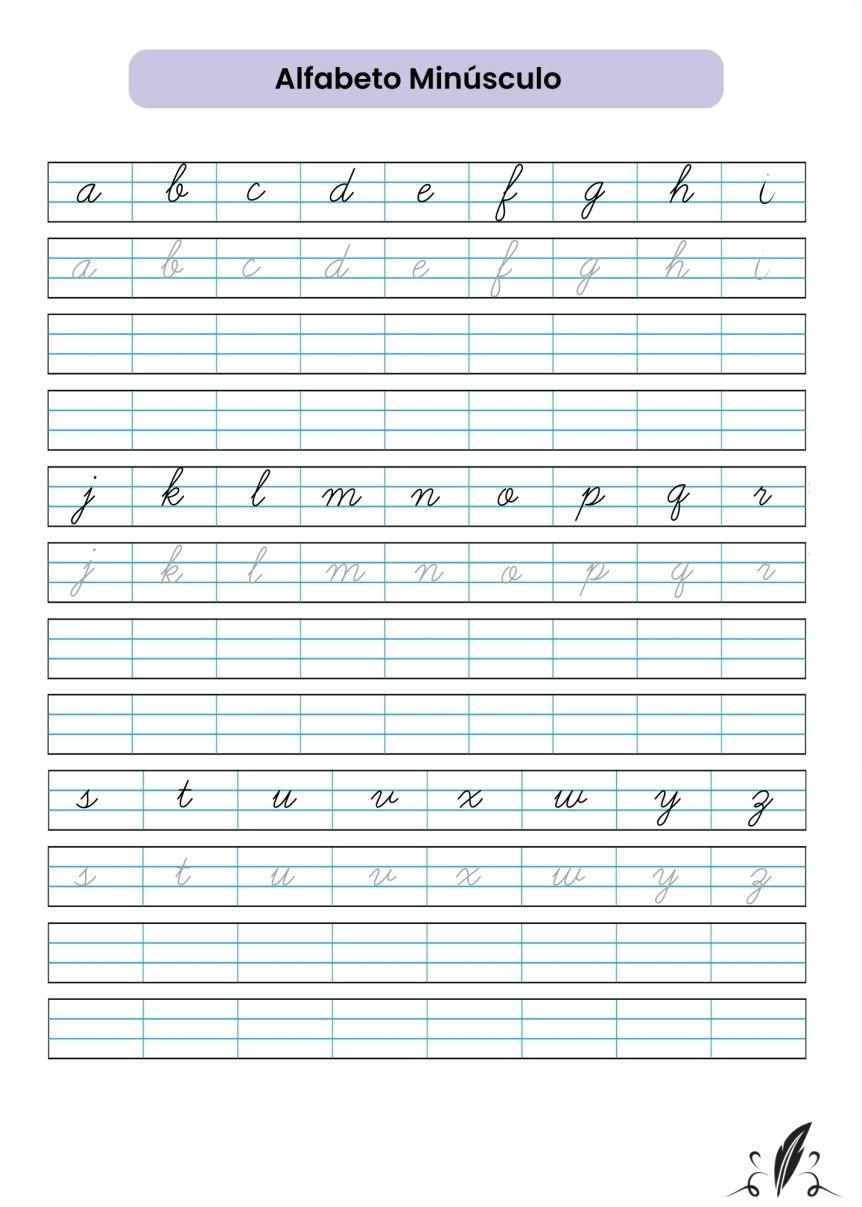 Alfabeto Minúsculo
a b c d e f g h i
a b c d e f g h i
j k l m n o p q r
j k l m n o p q r
s t u v x w y z
s t u v x w y z